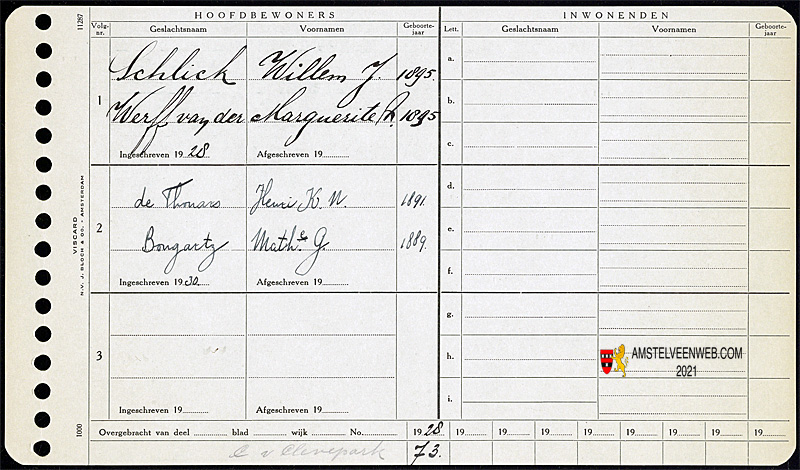 HOOFDBEWONERS
INWONENDEN
11287
Volg-nr.
Geslachtsnaam
Voornamen
Geboorte-jaar
Lett.
Geslachtsnaam
Voornamen
Geboorte-jaar
1
Schlick Willem J. 1895.
Werff van der Marguerite 1895
Ingeschreven 1928
Afgeschreven 19
2
de Thouars Henri K. N. 1891.
Bongartz Mathe G. 1889.
Ingeschreven 1930.
Afgeschreven 19
3
Ingeschreven 19
Afgeschreven 19
a.
b.
c.
d.
e.
f.
g.
h.
i.
AMSTELVEENWEB.COM
2021
VISCARD
N.V. J. BLOCH & CO. - AMSTERDAM
1000
Overgebracht van deel blad wijk No.
1928 19 19 19 19 19 19 19 19
C v Clevepark
73.